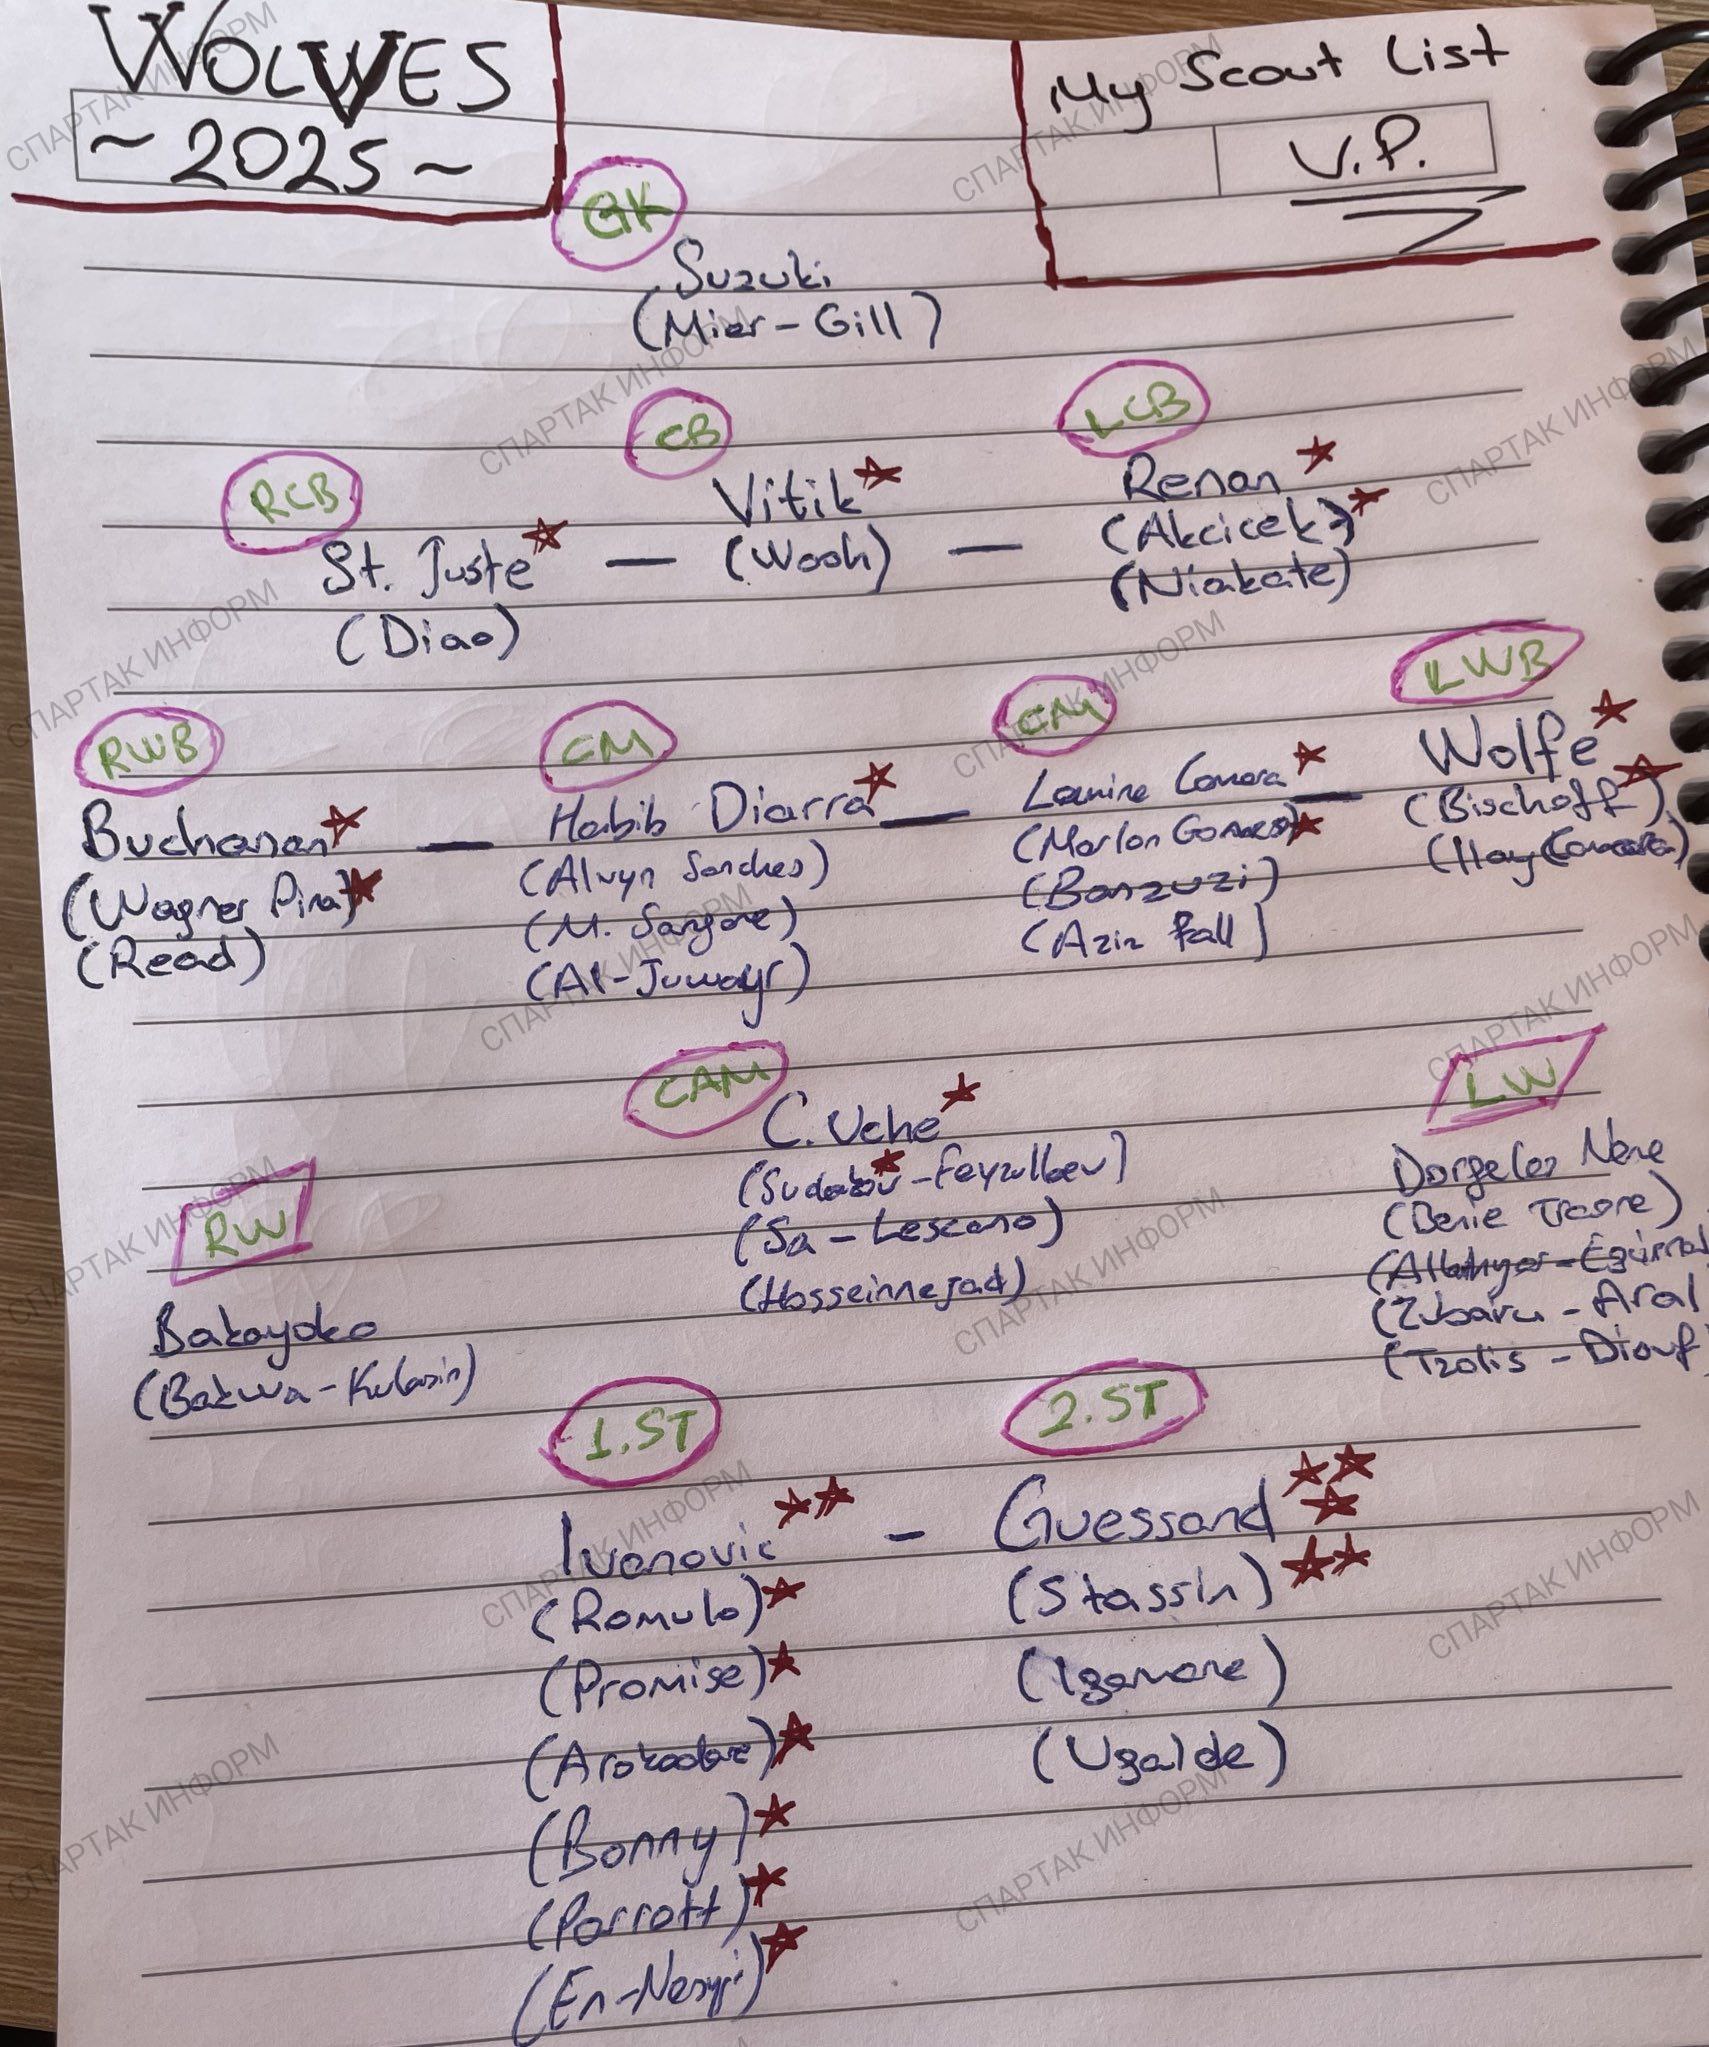 WOLVES
~ 2025 ~
My Scout List
V.P.
GK
Suzuki
(Mier - Gill)
RCB
St. Juste
(Diao)
CB
Vitik
(Wooh)
LCB
Renan
(Akcicek)
(Niakate)
RWB
Buchanan
(Wagner Pina)
(Read)
CM
Habib Diarra
(Alvyn Sanches)
(M. Sangare)
(Al-Juwayr)
CM
Lamine Camara
(Marlon Gomes)
(Banzuzi)
(Aziz Fall)
LWB
Wolfe
(Bischoff)
CAM
C. Uche
(Sudakov - Feyzullaev)
(Sa - Lescano)
(Hosseinnejad)
RW
Bakayoko
(Bakwa - Kulasin)
LW
Dorgeles Nene
(Benie Traore)
(Zubairu - Aral
(Tzolis - Diouf)
1.ST
Ivanovic
(Romulo)
(Promise)
(Arokodare)
(Bonny)
(Parrott)
(En-Nesyri)
2.ST
Guessand
(Stassin)
(Igamane)
(Ugalde)
СПАРТАК ИНФОРМ